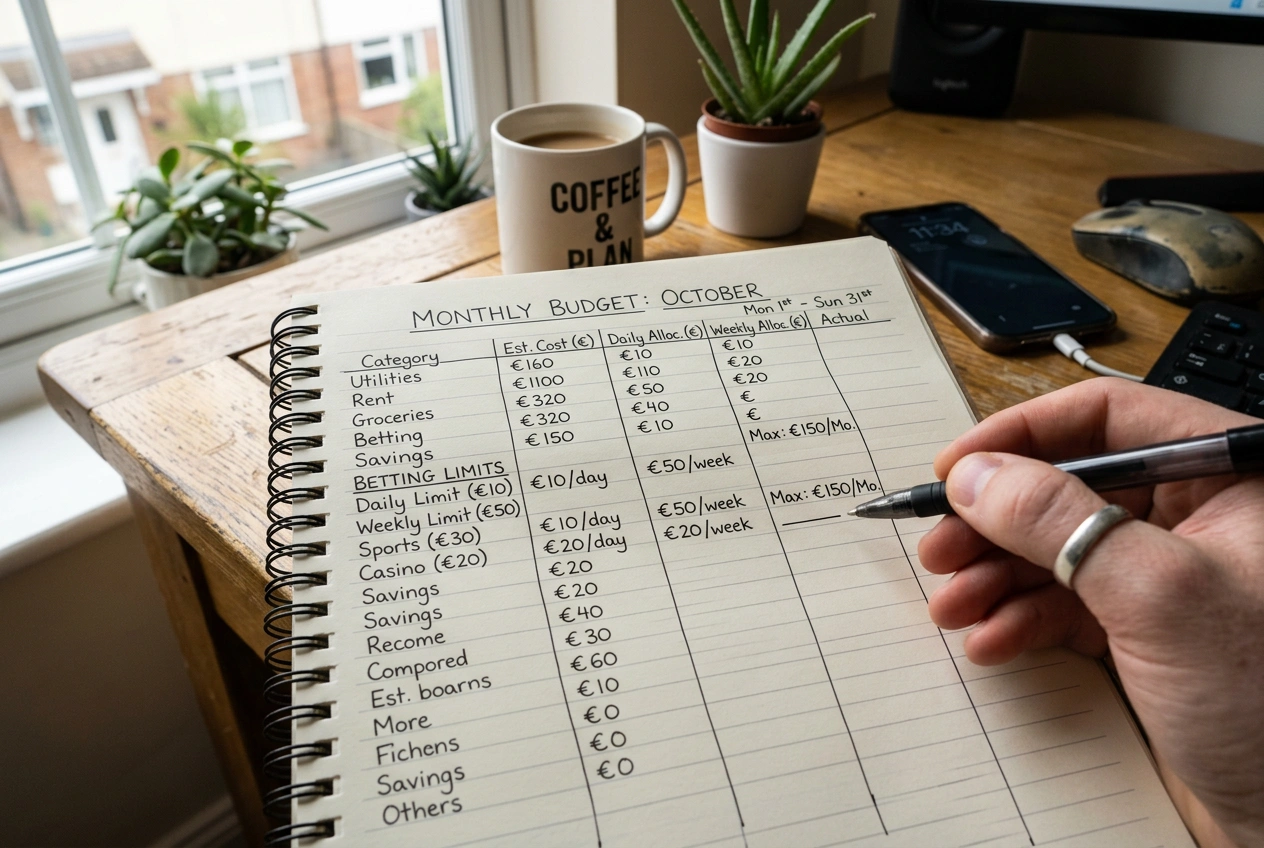 COFFEE
&
PLAN
logitech
11:34
MONTHLY BUDGET: OCTOBER
Mon 1st - Sun 31st
Category Est. Cost (€) Daily Alloc. (€) Weekly Alloc. (€) Actual
Utilities €160 €10 €10
Rent €1100 €110 €20
Groceries €320 €50 €20
Betting €320 €40 €
Savings €150 €10 €
BETTING LIMITS Max: €150/Mo.
Daily Limit (€10) €10/day €50/week
Weekly Limit (€50)
Sports (€30) €10/day €50/week Max: €150/Mo.
Casino (€20) €20/day €20/week
Savings €20
Savings €20
Recome €40
Compored €30
Est. boarns €60
More €10
Fichens €0
Savings €0
Others €0